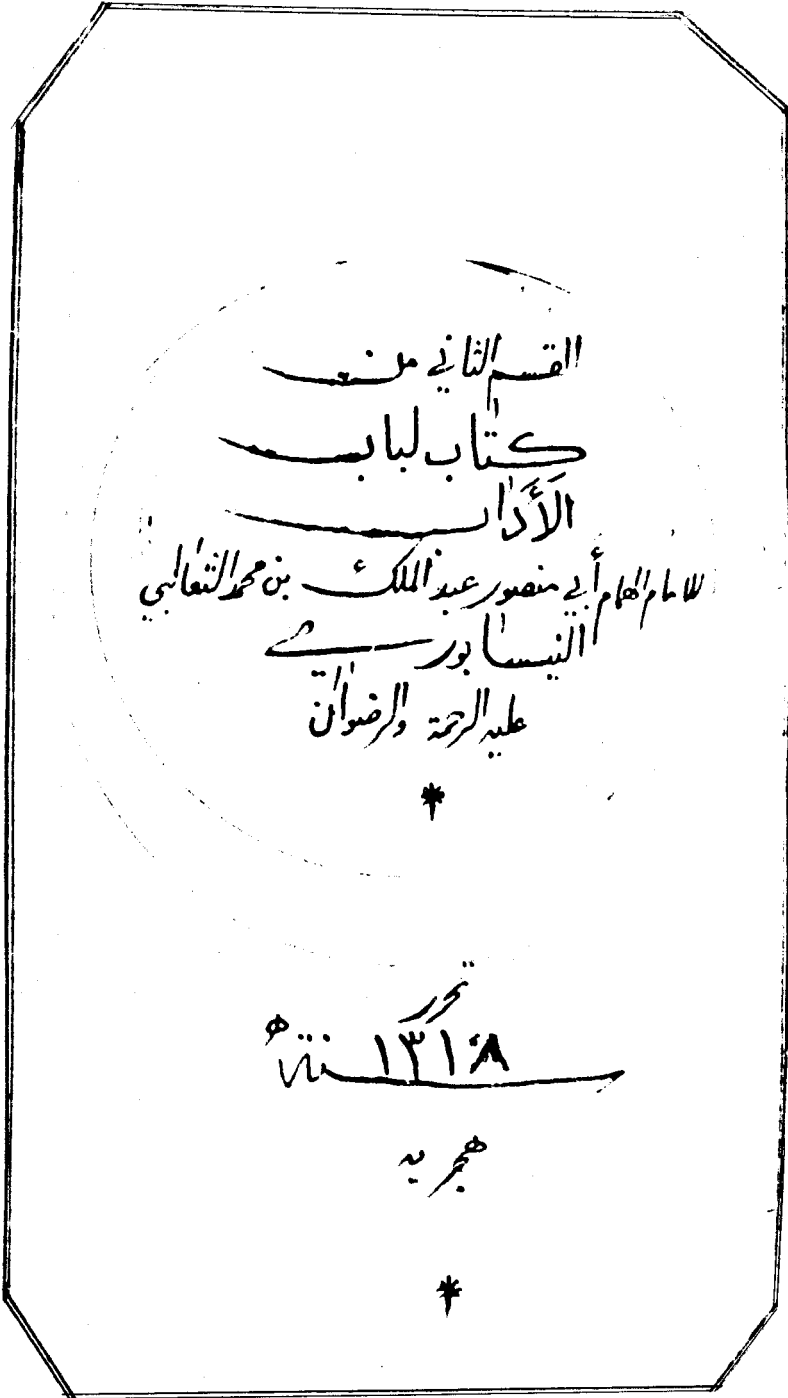 القسم الثاني من
كتاب لباب
الأَدَاب
للامام الهمام أبي منصور عبد الملك بن محمد الثعالبي
النيسابوري
عليه الرحمة والرضوان
تحرر
سنة ١٣١٨ هـ
هجريه